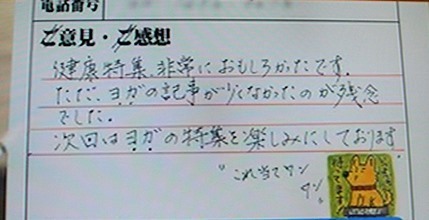 電話番号
ご意見・ご感想
健康特集、非常におもしろかったです。
ただ、ヨガの記事が少なかったのが残念
でした。
次回はヨガの特集を楽しみにしております。
"これ当てワン
ワン"
待ってます